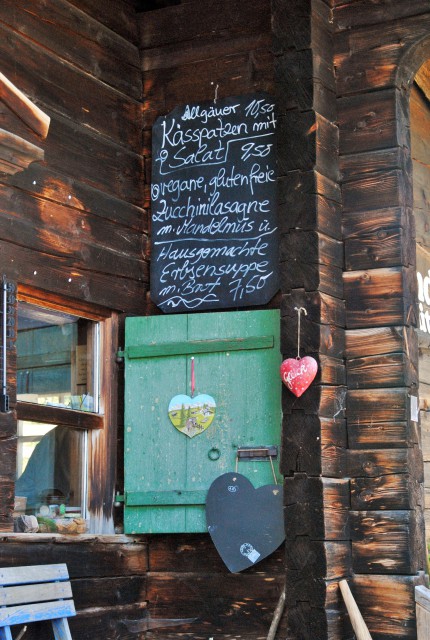 Allgäuer 10,50
Kässpatzen mit
Salat 9,50
vegane, glutenfreie
Zucchinilasagne
m. Mandelmus u.
Hausgemachte
Erbsensuppe
m. Brot 7,50
Glück